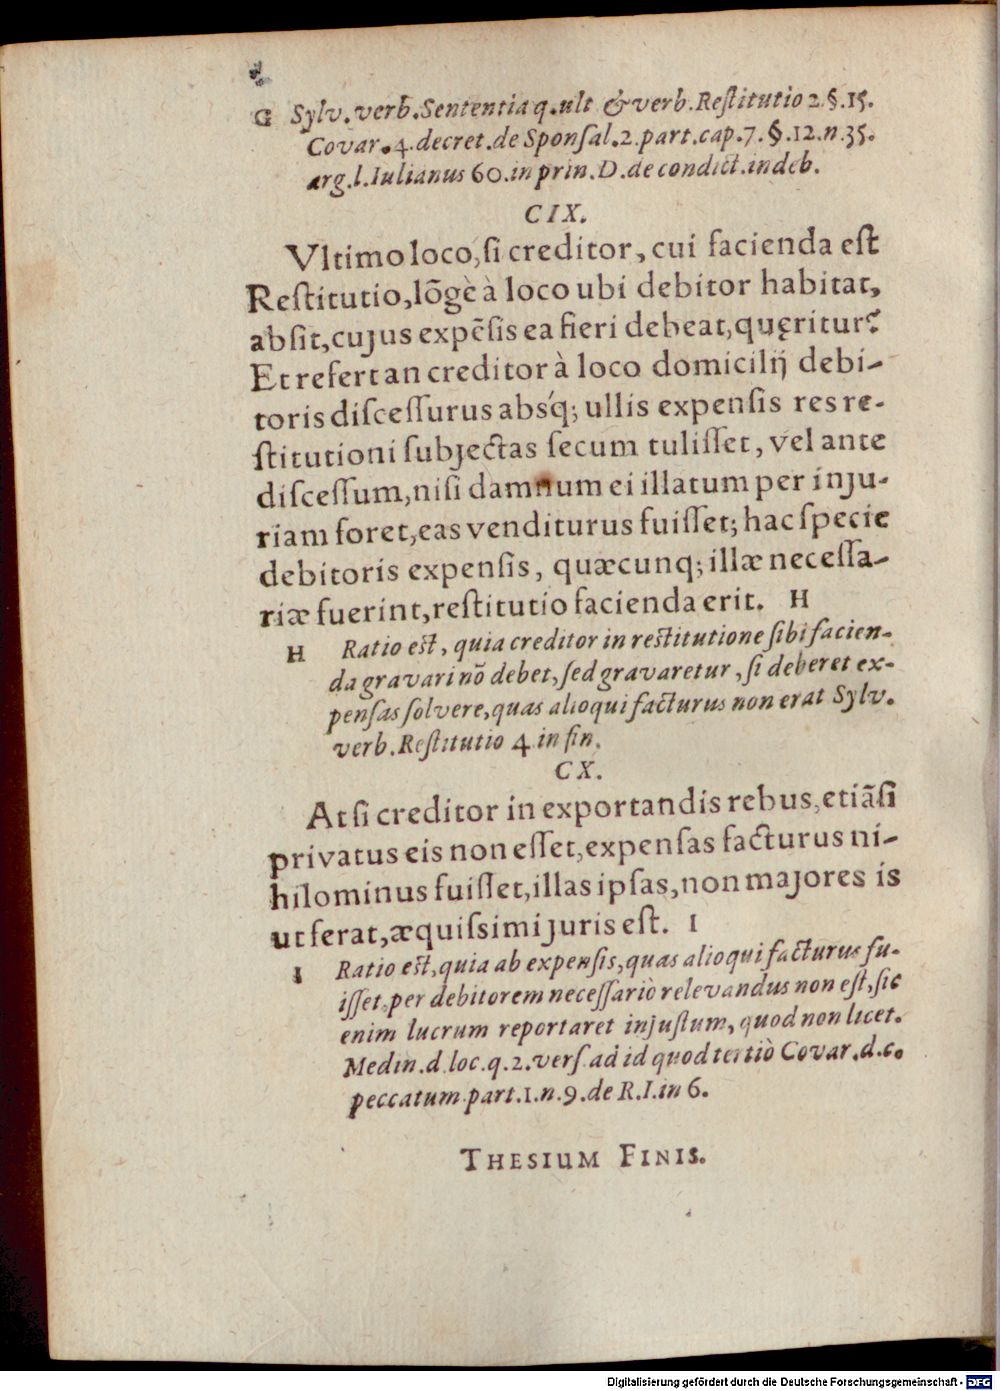 G Sylv. verb. Sententia q. ult & verb. Reſtitutio 2. §. 15.
Covar. 4. decret. de Sponſal. 2. part. cap. 7. §. 12. n. 35.
arg. l. Iulianus 60. in prin. D. de condict. indeb.
CIX.
Vltimo loco, ſi creditor, cui facienda eſt
Reſtitutio, lõgè à loco ubi debitor habitat,
abſit, cujus expēſis ea fieri debeat, quęritur?
Et refert an creditor à loco domicilij debi-
toris diſceſſurus absq́; ullis expenſis res re-
ſtitutioni ſubjectas ſecum tuliſſet, vel ante
diſceſſum, niſi damnum ei illatum per inju-
riam foret, eas venditurus fuiſſet; hac ſpecie
debitoris expenſis, quæcunq; illæ neceſſa-
riæ fuerint, reſtitutio facienda erit. H
H Ratio eſt, quia creditor in reſtitutione ſibi facien-
da gravari nõ debet, ſed gravaretur, ſi deberet ex-
penſas ſolvere, quas alioqui facturus non erat Sylv.
verb. Reſtitutio 4. in fin.
CX.
At ſi creditor in exportandis rebus, etiãſi
privatus eis non eſſet, expenſas facturus ni-
hilominus fuiſſet, illas ipſas, non majores is
ut ferat, æquiſsimi juris eſt. I
I Ratio eſt, quia ab expenſis, quas alioqui facturus fu-
iſſet, per debitorem neceſſariò relevandus non eſt, ſic
enim lucrum reportaret injuſtum, quod non licet.
Medin. d. loc. q. 2. verſ. ad id quod tertiò Covar. d. c.
peccatum part. 1. n. 9. de R. I. in 6.
THESIUM FINIS.
Digitalisierung gefördert durch die Deutsche Forschungsgemeinschaft - DFG